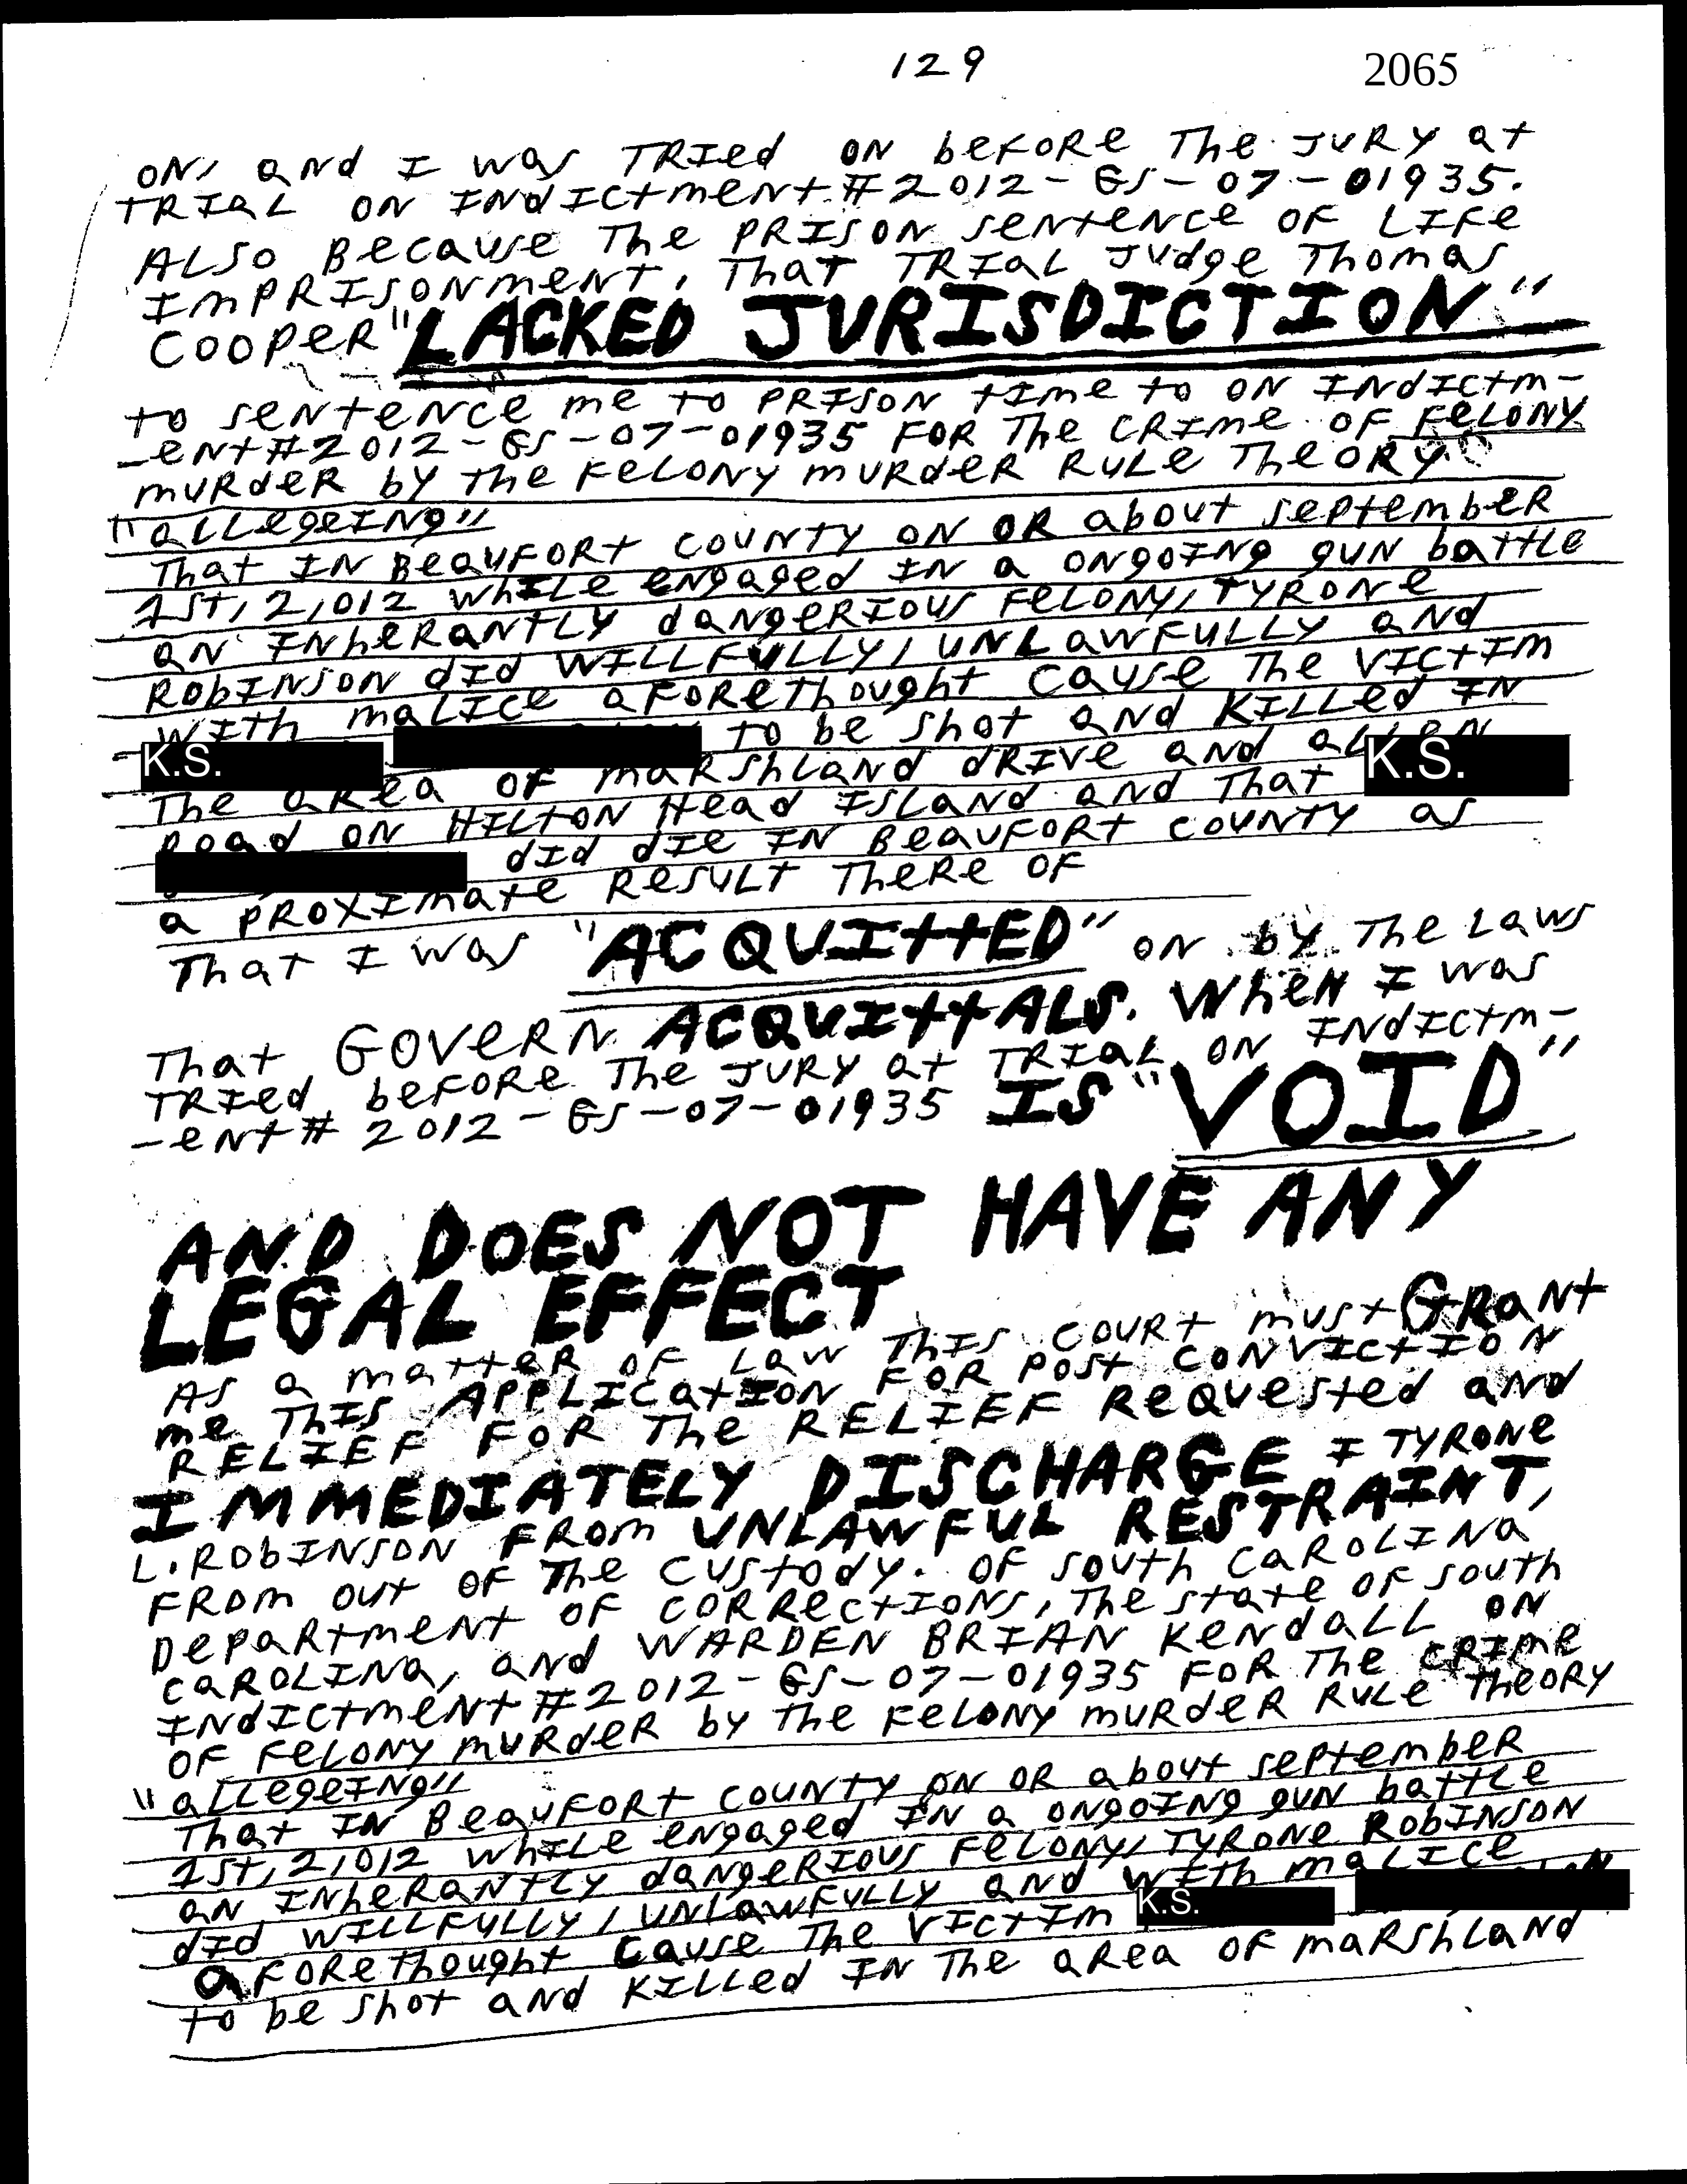 129 2065
ON, and I was TRIed ON beFORe The JURY at
TRIaL ON INdICtmeNt#2012-GS-07-01935.
ALSO Because The PRISON seNteNce OF LIFe
ImPRISONmeNt, That TRIaL Judge Thomas
COOPeR "LACKED JURISDICTION"
to seNteNce me to PRISON tIme to ON INdICtm-
-eNt#2012-GS-07-01935 FOR The CRIme OF FeLONY
muRdeR by The FeLONY muRdeR RuLe TheORY
"aLLegeINg"
That IN BeauFORt COUNTY ON OR about sePtembeR
1st, 2,012 whILe eNgaged IN a ONgOINg guN battLe
aN INheRaNtLY daNgeRIOus FeLONY, TYRONe
RobINSON dId WILLFULLY, UNLawFULLY aNd
WIth maLICe aFORethought cause The VICtIm
K.S. to be shot aNd KILLed IN
The aRea OF maRshLaNd dRIVe aNd aLLeN K.S.
Road ON HILtON Head ISLaNd aNd that
dId dIe IN BeauFORt COUNTY as
a PROXImate ResuLt TheRe OF
That I was "ACQUIttED" ON by The Laws
That GOVeRN ACQUIttALS. WheN I was
TRIed beFORe The JURY at TRIaL ON INdICtm-
-eNt# 2012-GS-07-01935 IS "VOID"
AND DOES NOT HAVE ANY
LEGAL EFFECT
AS a matteR OF Law ThIS COURt must GRaNt
me ThIS APPLICatION FOR POSt CONVICtION
RELIEF FOR The RELIEF RequeSted aNd
IMMEDIATELY DISCHARGE I TYRONe
L. RObINSON FROm UNLAWFUL RESTRAINT,
FROm Out OF The CUStOdy. OF SOUth CaROLINa
DePaRtmeNt OF CORReCtIONS, The State OF SOUth
CaROLINa, aNd WARDEN BRIAN KeNdaLL ON
INdICtmeNt#2012-GS-07-01935 FOR The CRIme
OF FeLONY muRdeR by The FeLONY muRdeR RuLe TheORY
"aLLegeINg"
That IN BeauFORt COUNTY ON OR about sePtembeR
1st, 2,012 whILe eNgaged IN a ONgOINg guN battLe
aN INheRaNtLY daNgeRIOus FeLONY, TYRONe RobINSON
dId WILLFULLY, UNLawFULLY aNd WIth maLICe
aFORethought cause The VICtIm K.S.
to be shot aNd KILLed IN The aRea OF maRshLaNd